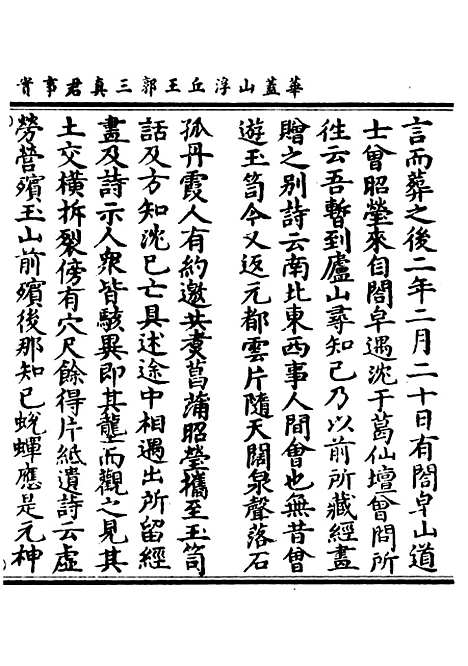 華蓋山浮丘王郭三真君事實
言而葬之後二年二月二十日有閤皁山道
士曾昭瑩來自閤皁遇沈于葛仙壇曾問所
往云吾暫到廬山尋知己乃以前所藏經畫
贈之别詩云南北東西事人間會也無昔曾
遊玉笥今又返元都雲片隨天闊泉聲落石
孤丹霞人有約邀共煑菖蒲昭瑩攜至玉笥
話及方知沈已亡具述途中相遇出所留經
畫及詩示人衆皆駭異即其壟而觀之見其
土交橫拆裂傍有穴尺餘得片紙遺詩云虚
勞營殯玉山前殯後那知已蛻蟬應是元神